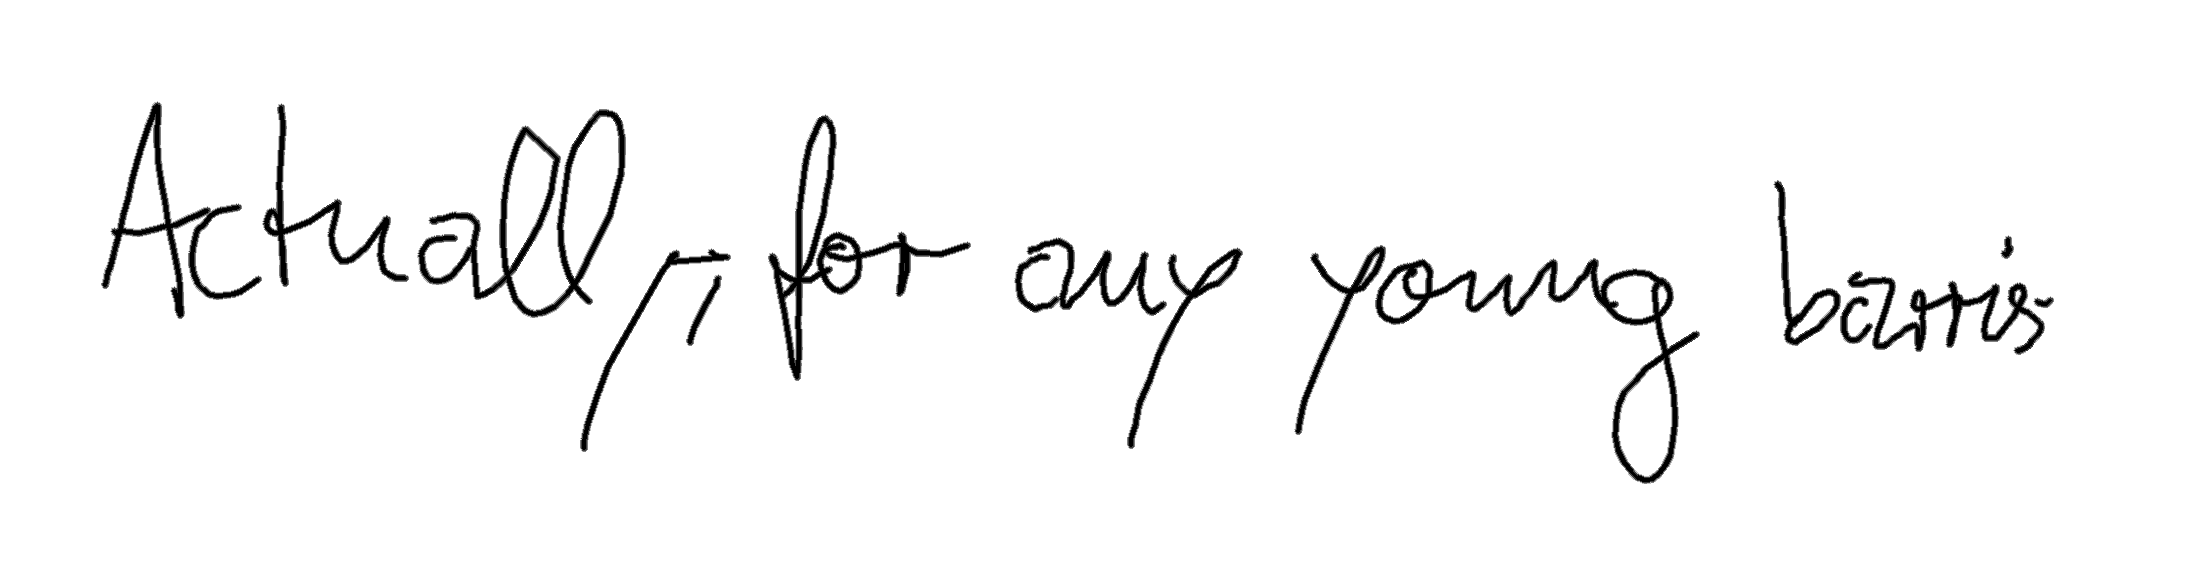 Actually, for any young barris-